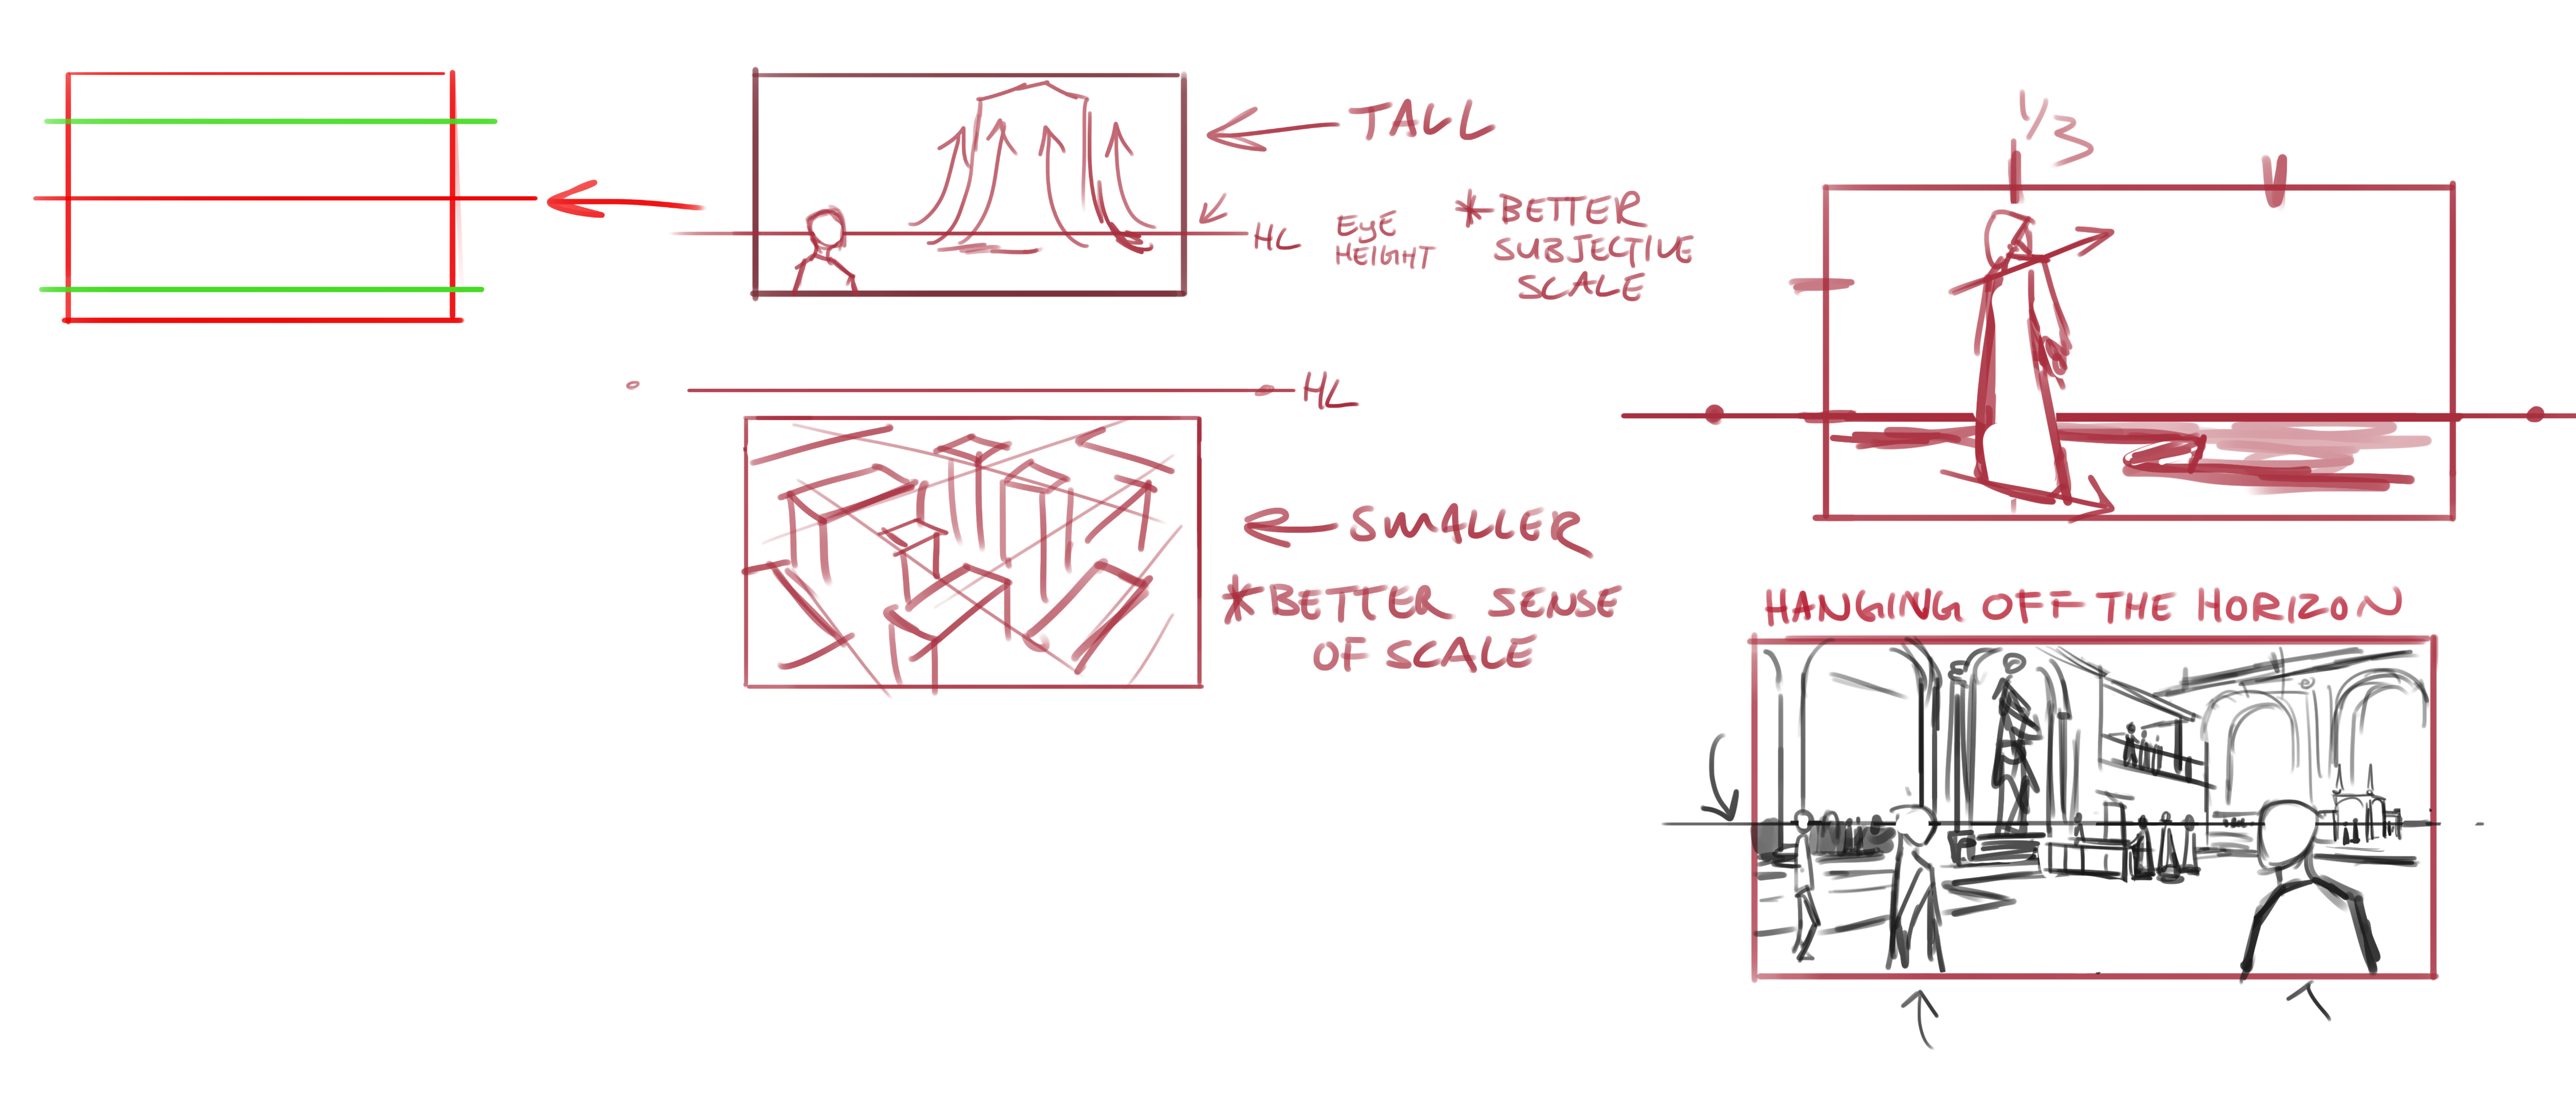 TALL
HL
EyE
HEIGHT
* BETTER
SUBJECTIVE
SCALE
HL
SMALLER
* BETTER SENSE
OF SCALE
1/3
HANGING OFF THE HORIZON